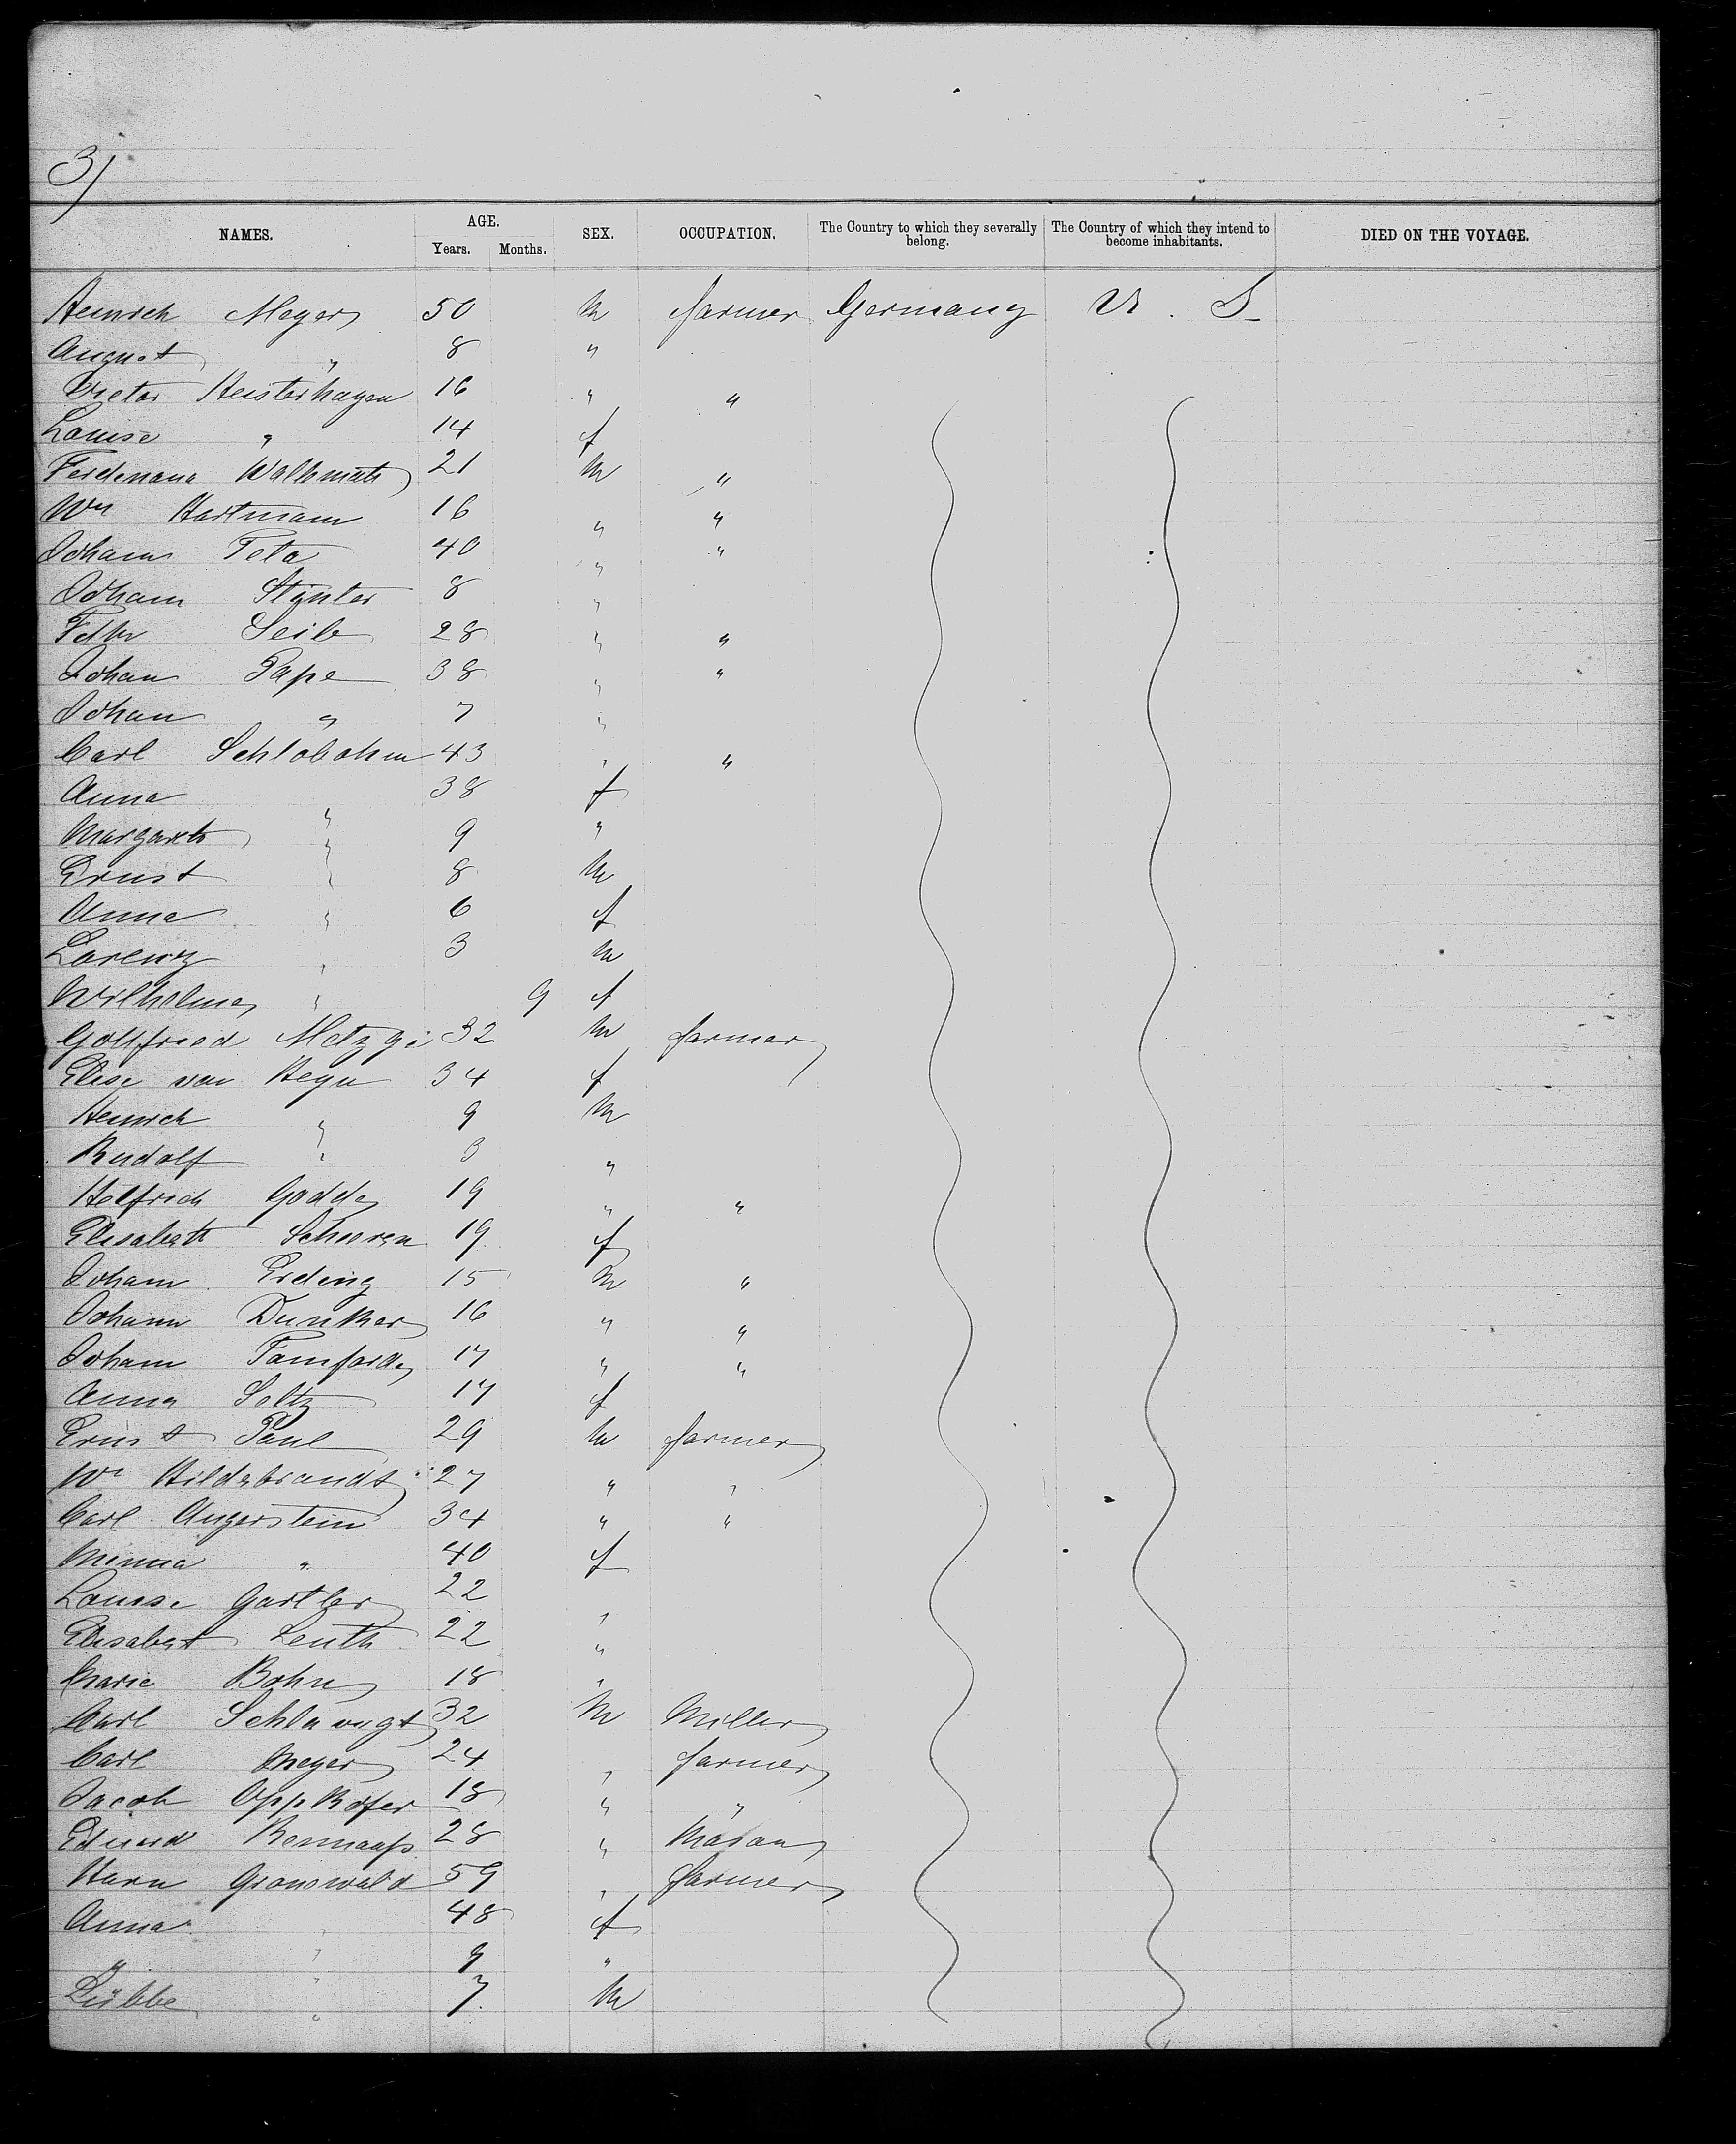 3)
NAMES. AGE. Years. Months. SEX. OCCUPATION. The Country to which they severally belong. The Country of which they intend to become inhabitants. DIED ON THE VOYAGE.
Heinrich Meyer 50 M farmer Germany U. S.
August " 8 "
Heisterhagen 16 " "
Louise " 14 f
Ferdinand 21 M "
Wm Hartmann 16 " "
Johann 40 " "
Johann 8 "
Seib 28 " "
Johan Pape 38 " "
Johan " 7 "
Carl Schlobohm 43 " "
Anna " 38 f
Margareth " 9 "
Ernst " 8 M
Anna " 6 f
Lorenz " 3 M
Wilhelme " 9 f
Gottfried 32 M farmer
Elise von 34 f
Heinrich " 9 M
Rudolf " 3 "
Helfrich Godde 19 " "
Elisabeth 19 f
Johann Erding 15 M "
Johann Dunker 16 " "
Johann 17 " "
Anna Seltz 17 f
Ernst Paul 29 M farmer
Wm Hildebrandt 27 " "
Carl Angerstein 34 " "
Minna " 40 f
Louise Gartler 22 "
Elisabeth Leuth 22 "
Marie Bohn 18 "
Carl 32 M Miller
Carl Meyer 24 " farmer
Jacob 18 " "
Eduard 28 " Mason
Harn Gronewald 59 " farmer
Anna " 48 f
" " 9 "
Lübbe " 7 M